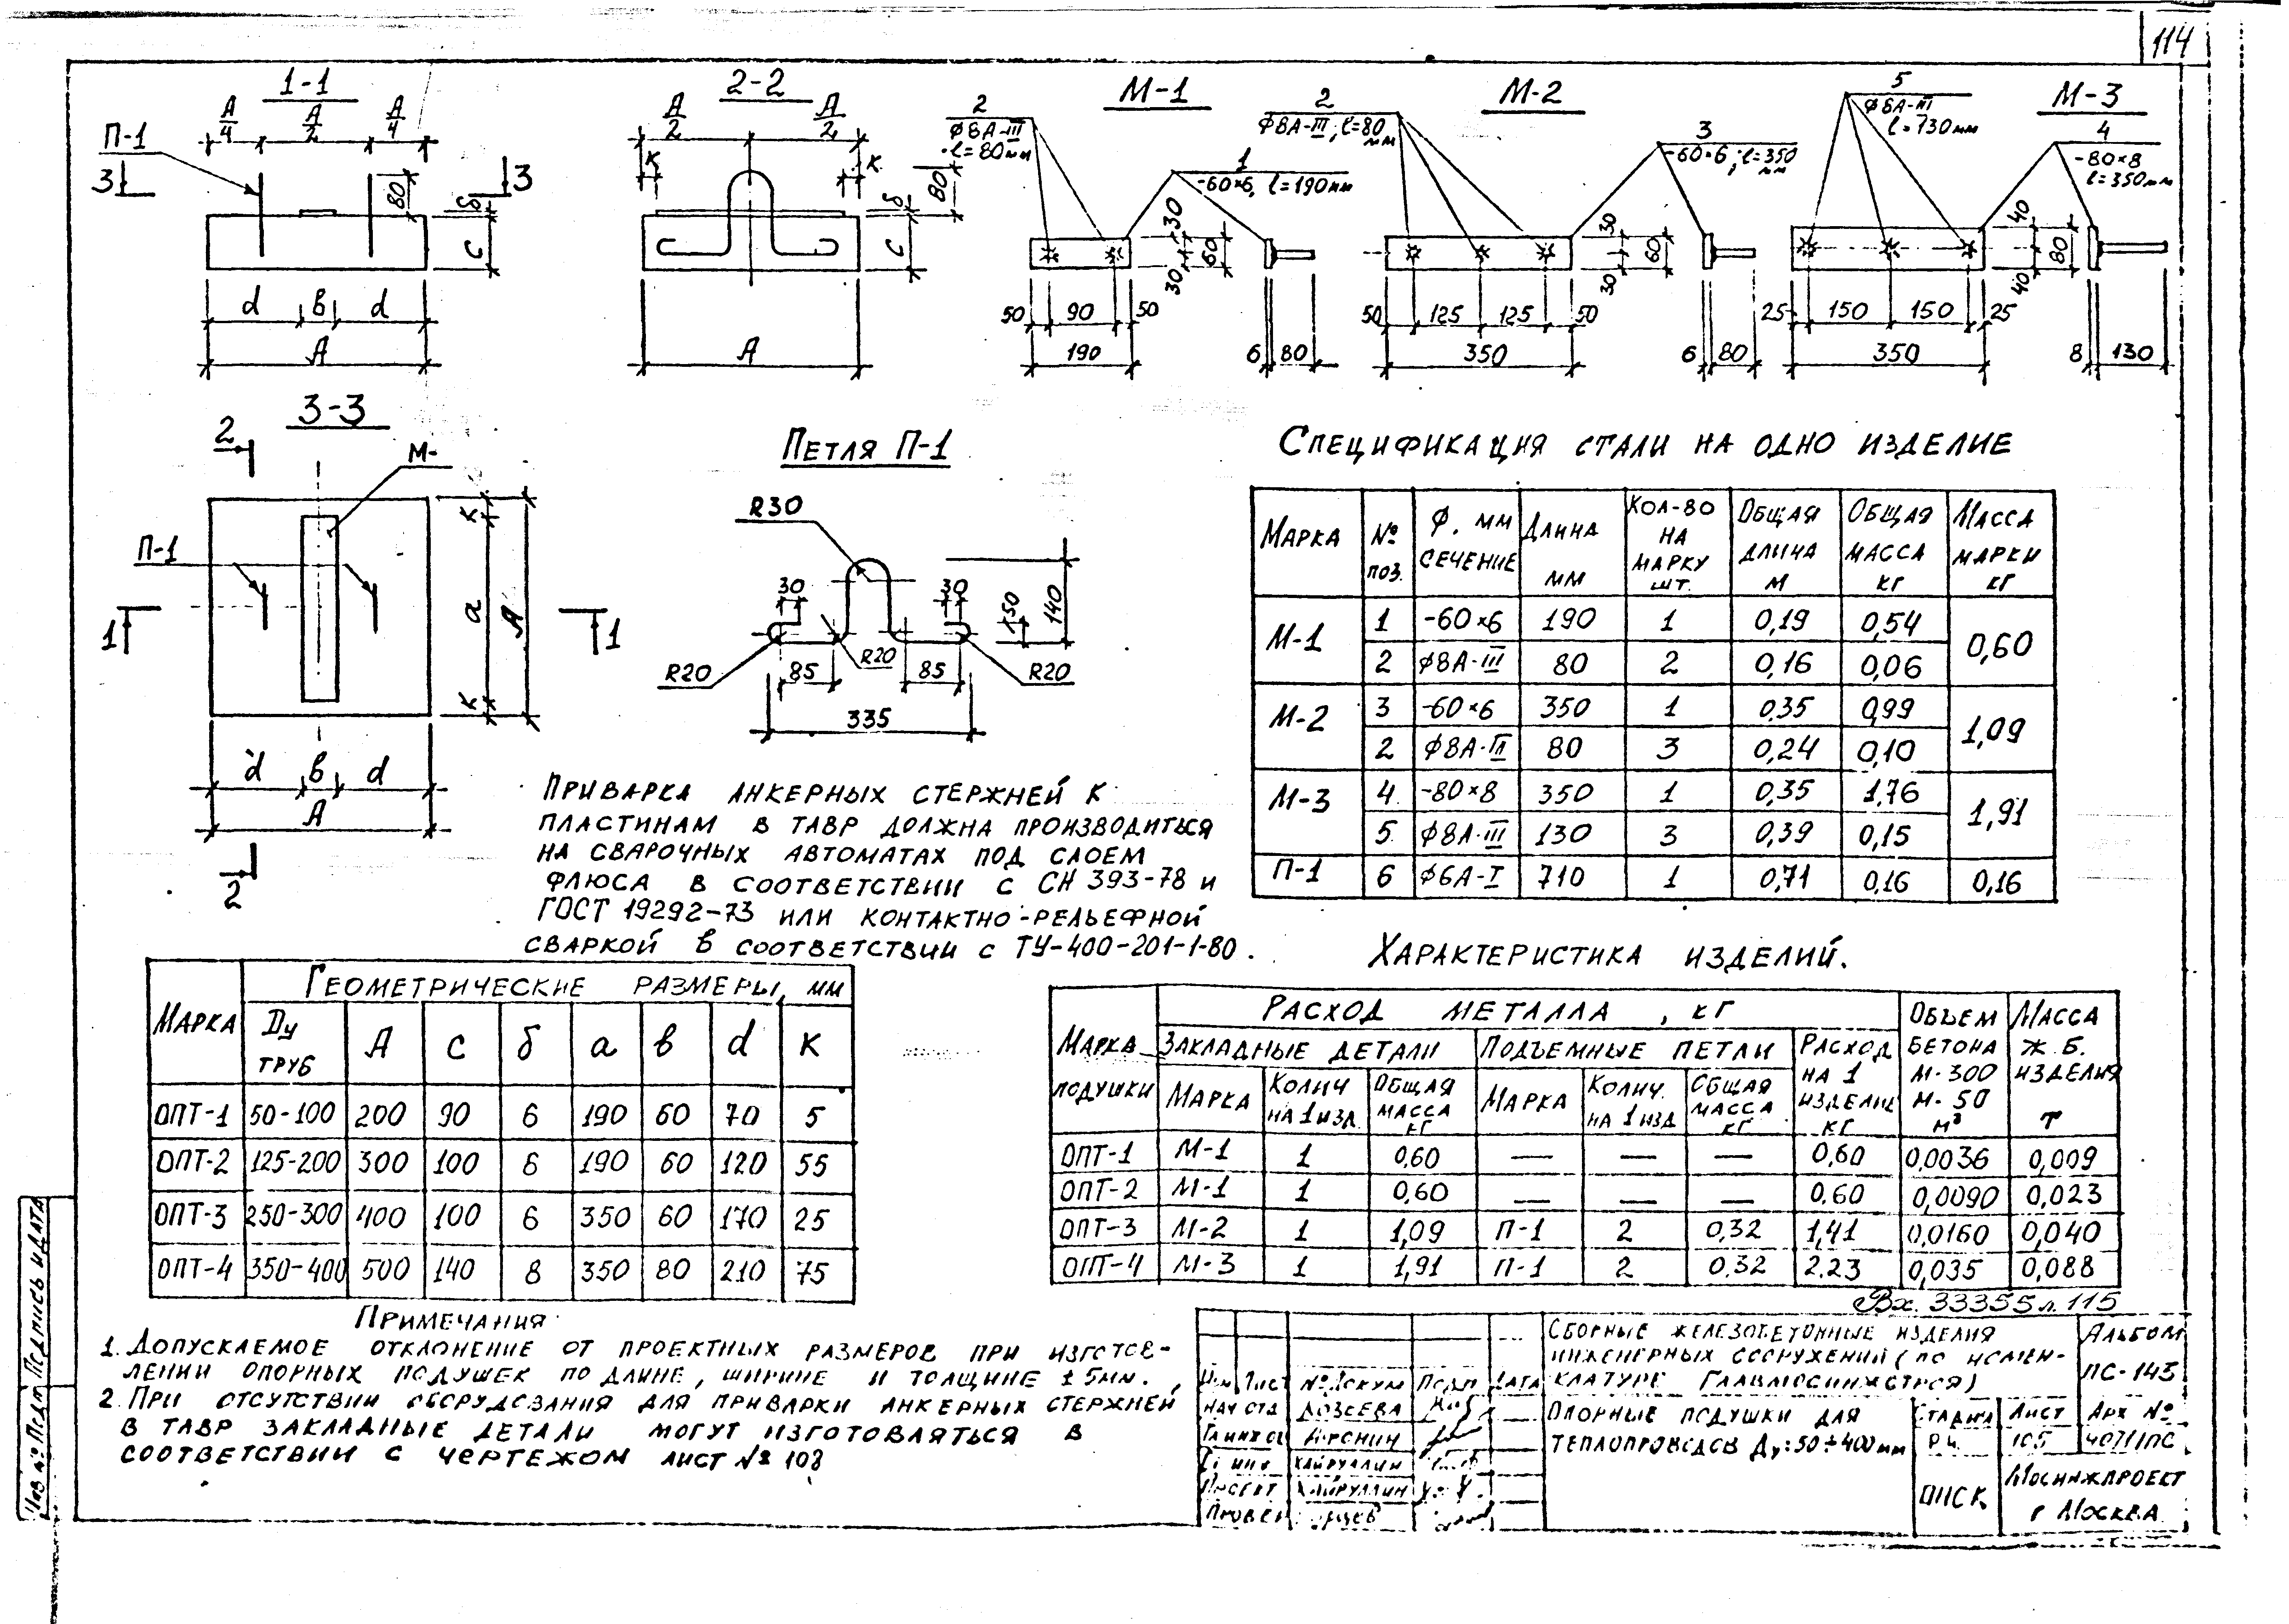 114
1-1
A/4 A/2 A/4
П-1
3 3
80
δ
С
d в d
А
2-2
А/2 А/2
К К
δ 80
С
А
М-1
2
ф8А-III
l=80мм
1
-60×6, l=190мм
30 30 60
50 90 50
190
6 80
М-2
2
ф8А-III; l=80мм
3
-60×6; l=350мм
30 30 60
50 125 125 50
350
6 80
М-3
5
ф8А-III
l=130мм
4
-80×8
l=350мм
40 40 80
25 150 150 25
350
8 130
3-3
2
М-
П-1
К
а А
К
1 1
d в d
А
2
Петля П-1
R30
30 30
50 140
R20 85 R20 85 R20
335
Приварка анкерных стержней к
пластинам в тавр должна производиться
на сварочных автоматах под слоем
флюса в соответствии с СН 393-78 и
ГОСТ 19292-73 или контактно-рельефной
сваркой в соответствии с ТУ-400-201-1-80.
Спецификация стали на одно изделие
Марка № поз. Ф. мм сечение Длина мм Кол-во на марку шт. Общая длина м Общая масса кг Масса марки кг
М-1 1 -60×6 190 1 0,19 0,54 0,60
2 ф8А-III 80 2 0,16 0,06
М-2 3 -60×6 350 1 0,35 0,99 1,09
2 ф8А-III 80 3 0,24 0,10
М-3 4 -80×8 350 1 0,35 1,76 1,91
5 ф8А-III 130 3 0,39 0,15
П-1 6 ф6А-I 710 1 0,71 0,16 0,16
Марка Геометрические размеры, мм
Dу труб А С δ а в d К
ОПТ-1 50-100 200 90 6 190 60 70 5
ОПТ-2 125-200 300 100 6 190 60 120 55
ОПТ-3 250-300 400 100 6 350 60 170 25
ОПТ-4 350-400 500 140 8 350 80 210 75
Характеристика изделий.
Марка подушки Расход металла, кг Объем бетона М-300 М-50 м³ Масса ж.б. изделия т
Закладные детали Подъемные петли Расход на 1 изделие кг
Марка Колич на 1 изд. Общая масса кг Марка Колич. на 1 изд Общая масса кг
ОПТ-1 М-1 1 0,60 — — — 0,60 0,0036 0,009
ОПТ-2 М-1 1 0,60 — — — 0,60 0,0090 0,023
ОПТ-3 М-2 1 1,09 П-1 2 0,32 1,41 0,0160 0,040
ОПТ-4 М-3 1 1,91 П-1 2 0,32 2,23 0,035 0,088
Вх. 33355 л. 115
Примечания
1. Допускаемое отклонение от проектных размеров при изготов-
лении опорных подушек по длине, ширине и толщине ±5мм.
2. При отсутствии оборудования для приварки анкерных стержней
в тавр закладные детали могут изготовляться в
соответствии с чертежом лист № 108
Инв № Подл Подпись и дата
Сборные железобетонные изделия
инженерных сооружений (по номен-
клатуре Главмосинжстроя)
Альбом
ПС-143
Изм Лист № Докум Подп Дата
Нач отд
Хайруллин
Хайруллин
Провер
Опорные подушки для
теплопроводов Ду:50÷400мм
Стадия Лист Арх №
Р.ч. 105
ОПСК
Мосинжпроект
г Москва